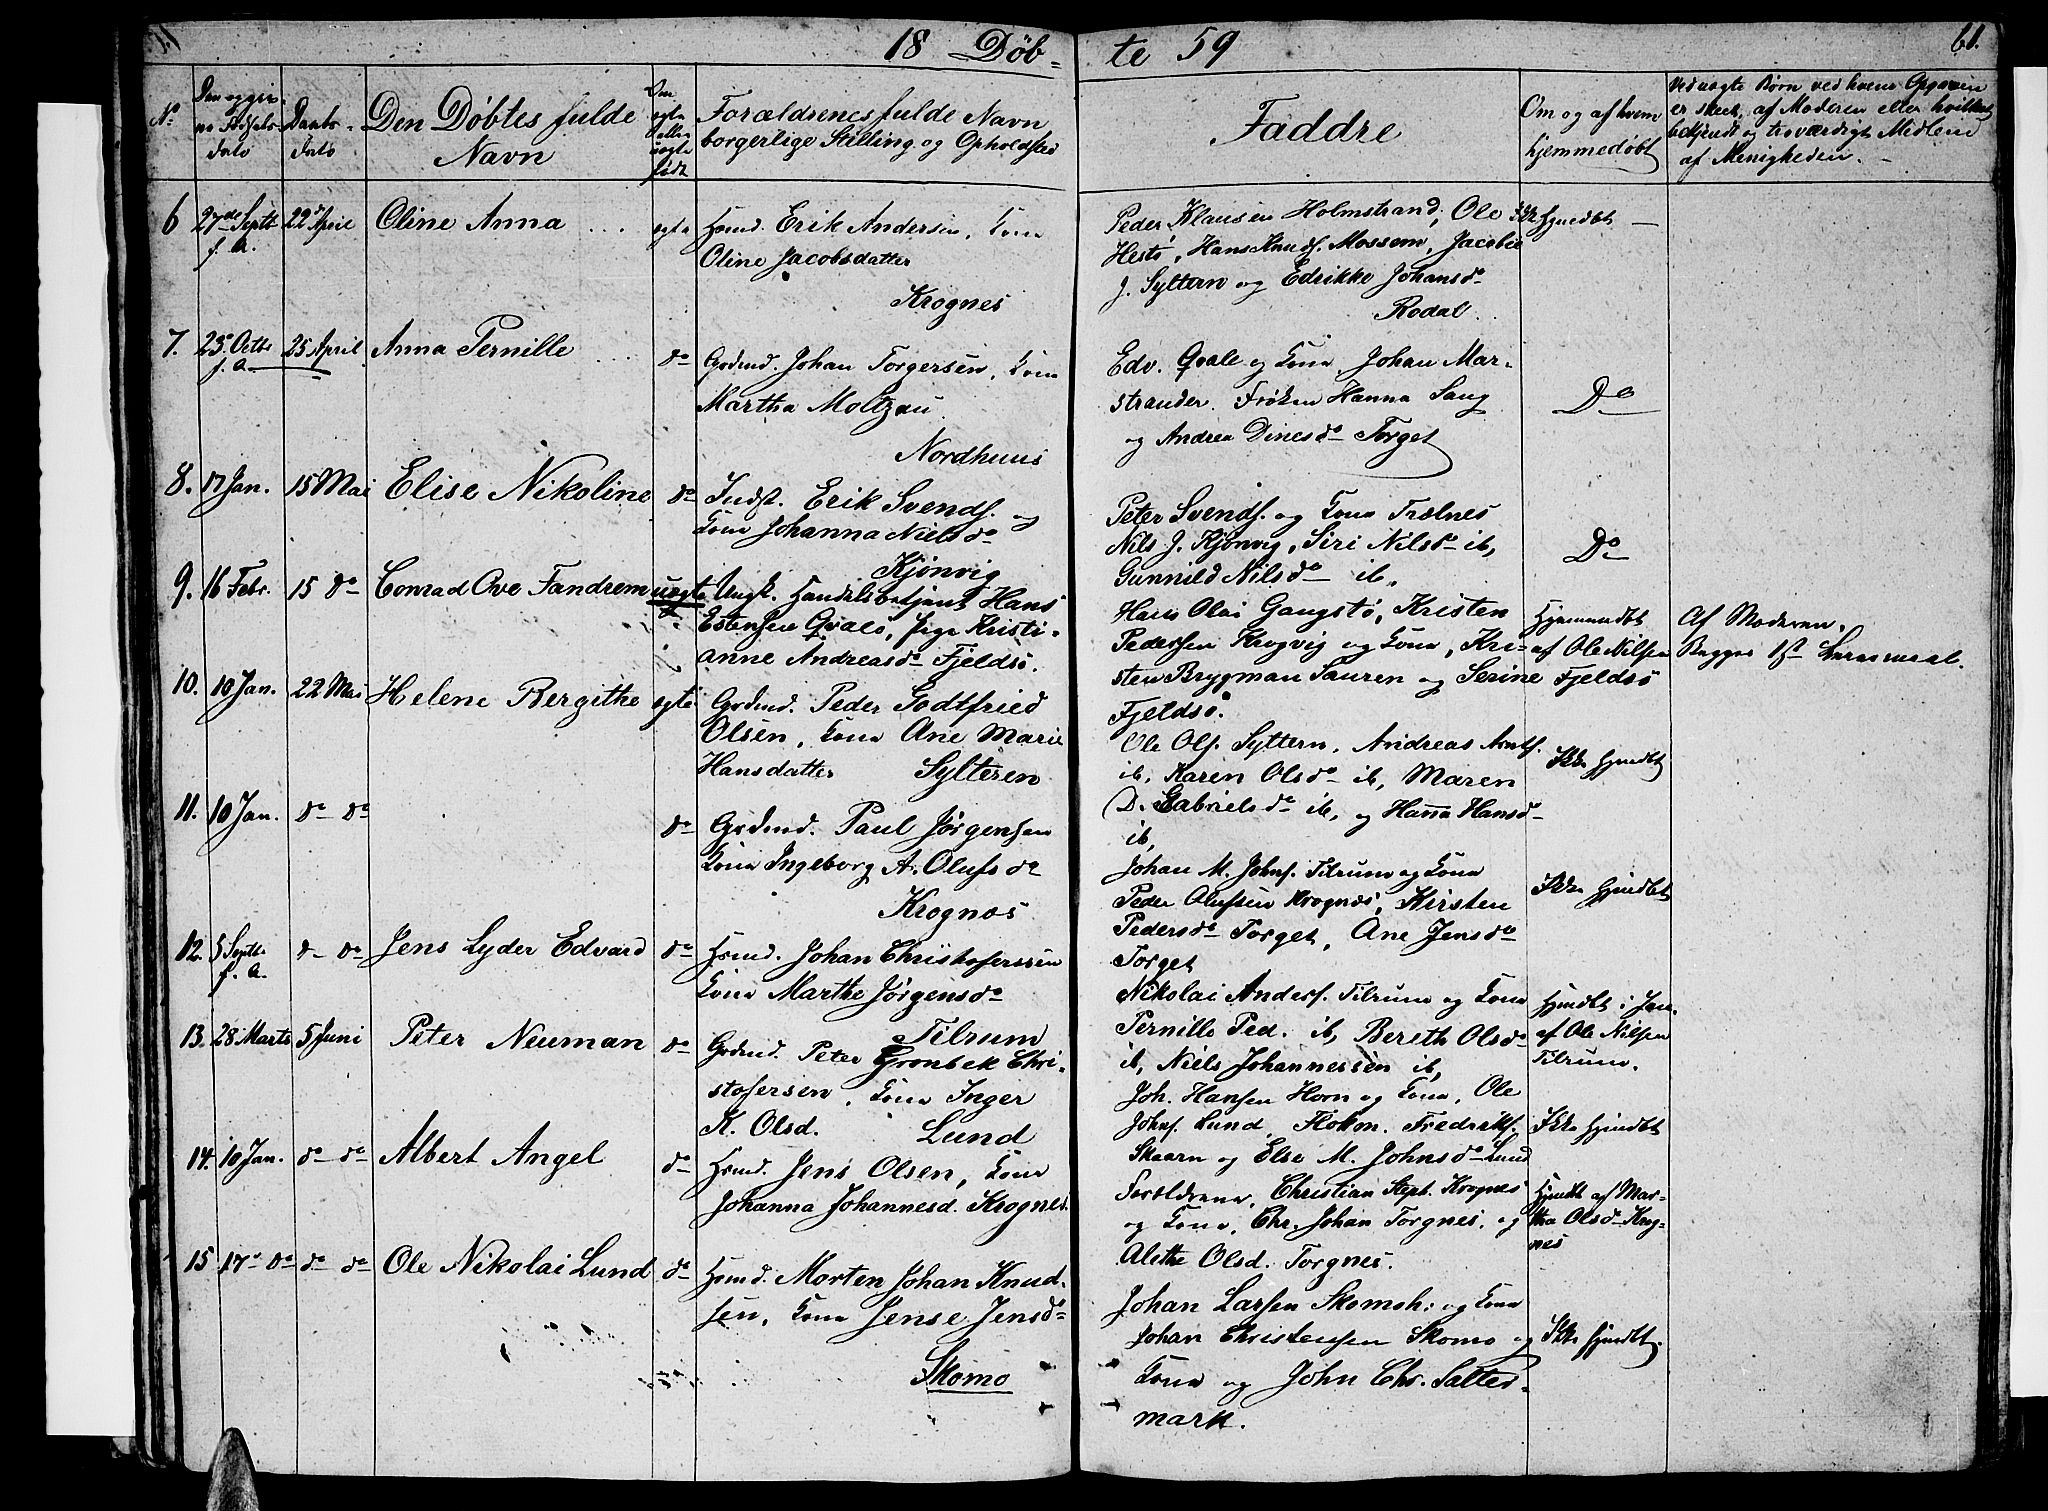 18 Døb-
te 59
61.
No
Den Døbtes fulde
Navn
Daabs-
dato
Forældrenes fulde Navn
borgerlige Stilling og Opholdsted
Faddre
Om og af hvem
hjemmedøbt
er skeet, af Moderen eller
af Menigheden.
6 27de Septb f. A. 22 April Oline Anna ... egte
Hsmd. Erik Andersen, Kone
Oline Jacobsdatter
Krognes
Peder Klausen Holmstrand, Ole
Hestø, Hans Knuds. Mossem, Jacobie
J. Syltern og Edrikke Johansd
Rodal.
Ikke Hjmdbt —
7. 23 Octb f. A. 25 April Anna Pernille ... do
Grdmd. Johan Torgersen, Kone
Martha Moltzau.
Nordhuus
Edv. Qvale og Kone, Johan Mar-
strander. Frøken Hanna Sang
og Andrea Dinesd Torget
Do
8. 17 Jan. 15 Mai Elise Nikoline do
Indst. Erik Svends. og
Kone Johanna Nielsd
Kjønvig
Peter Svends. og Kone Trælnes
Nils J. Kjønvig, Siri Nilsd ib,
Gunnild Nilsd ib.
Do
9. 16 Febr. 15 do Conrad Ove Fandrem uegte
Ungk. Handelsbetjent Hans
Estensen Qvalø, Pige Kristi-
anne Andreasd Fjeldsø.
Hans Olai Gangstø, Kristen
Pedersen Krogvig og Kone, Kri-
sten Brygman Sauren og Serine
Fjeldsø.
Hjemmedbt
af Ole Nilsen
Fjeldsø
Af Moderen.
Begges 1st Leiermaal.
10. 10 Jan. 22 Mai Helene Bergithe egte
Grdmd. Peder Godtfried
Olsen, Kone Ane Marie
Hansdatter Sylteren
Ole Ols. Syltern, Andreas Arnts.
ib, Karen Olsd ib, Maren
D. Gabrielsd ib, og Hanna Hansd
ib,
Ikke Hjmdbt
11. 10 Jan. do do do
Grdmd. Paul Jørgensen
Kone Ingeborg A. Olufsd
Krognæs
Johan M. Johns. Tilrum og Kone
Peder Olufsen Krognæs, Kirsten
Pedersd Torget, Ane Jensd
Torget
Ikke Hjmdbt
12. 5 Septb f. A. do do Jens Lyder Edvard do
Hsmd. Johan Christofersen
Kone Marthe Jørgensd
Tilrum
Nikolai Anders. Tilrum og Kone
Pernille Ped. ib, Bereth Olsd
ib, Niels Johannessen ib,
Hjmdbt i Jan.
af Ole Nilsen
Tilrum.
13. 28 Marts 5 Juni Peter Neuman do
Grdmd. Peter Grønbek Chri-
stofersen, Kone Inger
K. Olsd. Lund
Joh. Hansen Horn og Kone, Ole
Johns. Lund, Flokm. Fredriks.
Skaarn og Else M. Johnsd Lund
Ikke Hjmdbt
14. 10 Jan. do do Albert Angel do
Hsmd. Jens Olsen, Kone
Johanna Johannesd. Krognes.
Forældrene, Christian Steph. Krognes
og Kone, Chr. Johan Torgnes, og
Alethe Olsd. Torgnes.
Hjmdbt af Mar-
tha Olsd Krog-
nes
15 17 do do do Ole Nikolai Lund do
Hsmd. Morten Johan Knud-
sen, Kone Jense Jensd
Skomo
Johan Larsen Skomoh: og Kone
Johan Christensen Skomo og
Kone og John Chr. Salter-
mark.
Ikke Hjmdbt.